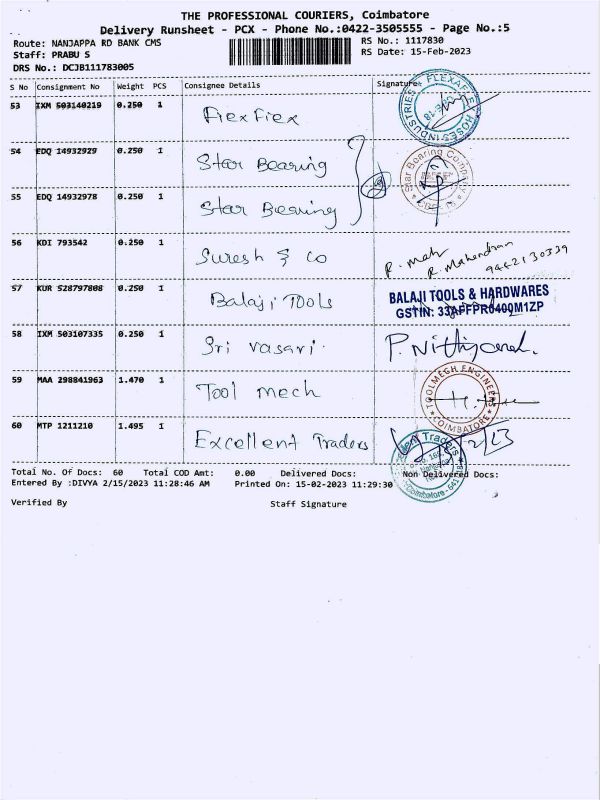 THE PROFESSIONAL COURIERS, Coimbatore
Delivery Runsheet - PCX - Phone No.:0422-3505555 - Page No.:5
Route: NANJAPPA RD BANK CMS RS No.: 1117830
Staff: PRABU S RS Date: 15-Feb-2023
DRS No.: DCJB111783005
S No Consignment No Weight PCS Consignee Details Signature
53 IXM 503140219 0.250 1 Flex Flex
FLEXAFLE HOSES INDUSTRIES
54 EDQ 14932929 0.250 1 Star Bearing
Star Bearing Company
55 EDQ 14932978 0.250 1 Star Bearing
56 KDI 793542 0.250 1 Suresh & Co R. Mah
R. Mahendran
9442130339
57 KUR 528797808 0.250 1 Balaji Tools BALAJI TOOLS & HARDWARES
GSTIN: 33AFFPR0400M1ZP
58 IXM 503107335 0.250 1 Sri Vasavi. P. Nithiyanand.
59 MAA 298841963 1.470 1 Tool mech TOOLMECH ENGINEERS
COIMBATORE
60 MTP 1211210 1.495 1 Excellent Traders
Traders
Coimbatore - 641
Total No. Of Docs: 60 Total COD Amt: 0.00 Delivered Docs: Non Delivered Docs:
Entered By :DIVYA 2/15/2023 11:28:46 AM Printed On: 15-02-2023 11:29:30
Verified By Staff Signature